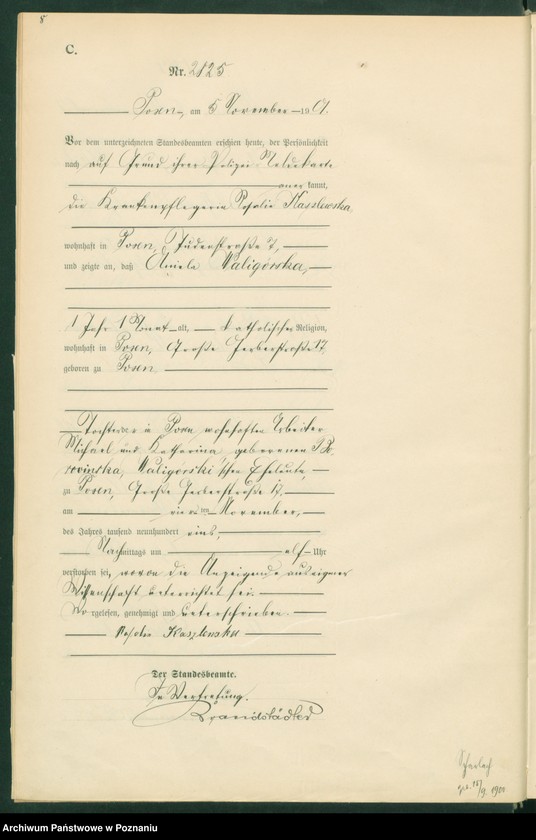 8
C.
Nr. 2125
Posen, am 5 November 1901.
Vor dem unterzeichneten Standesbeamten erschien heute, der Persönlichkeit
nach auf Grund ihrer Polizei Meldekarte
anerkannt,
die Krankenpflegerin Rosalie Kaszlewska,
wohnhaft in Posen, Judenstraße 7,
und zeigte an, daß Aniela Waligórska,
1 Jahr 1 Monat alt, katholischer Religion,
wohnhaft in Posen, Große Gerberstraße 17,
geboren zu Posen
Tochter der in Posen wohnhaften Arbeiter
Michael und Katharina, geborenen
Waligórski'schen Eheleute,
zu Posen, Große Gerberstraße 17,
am vierten November,
des Jahres tausend neunhundert eins,
Nachmittags um elf Uhr
verstorben sei, wovon die Anzeigende aus eigener
Wissenschaft unterrichtet sei.
Vorgelesen, genehmigt und unterschrieben.
Rosalie Kaszlewska
Der Standesbeamte.
In Vertretung.
Brandstädter
Scharlach
1901
Archiwum Państwowe w Poznaniu